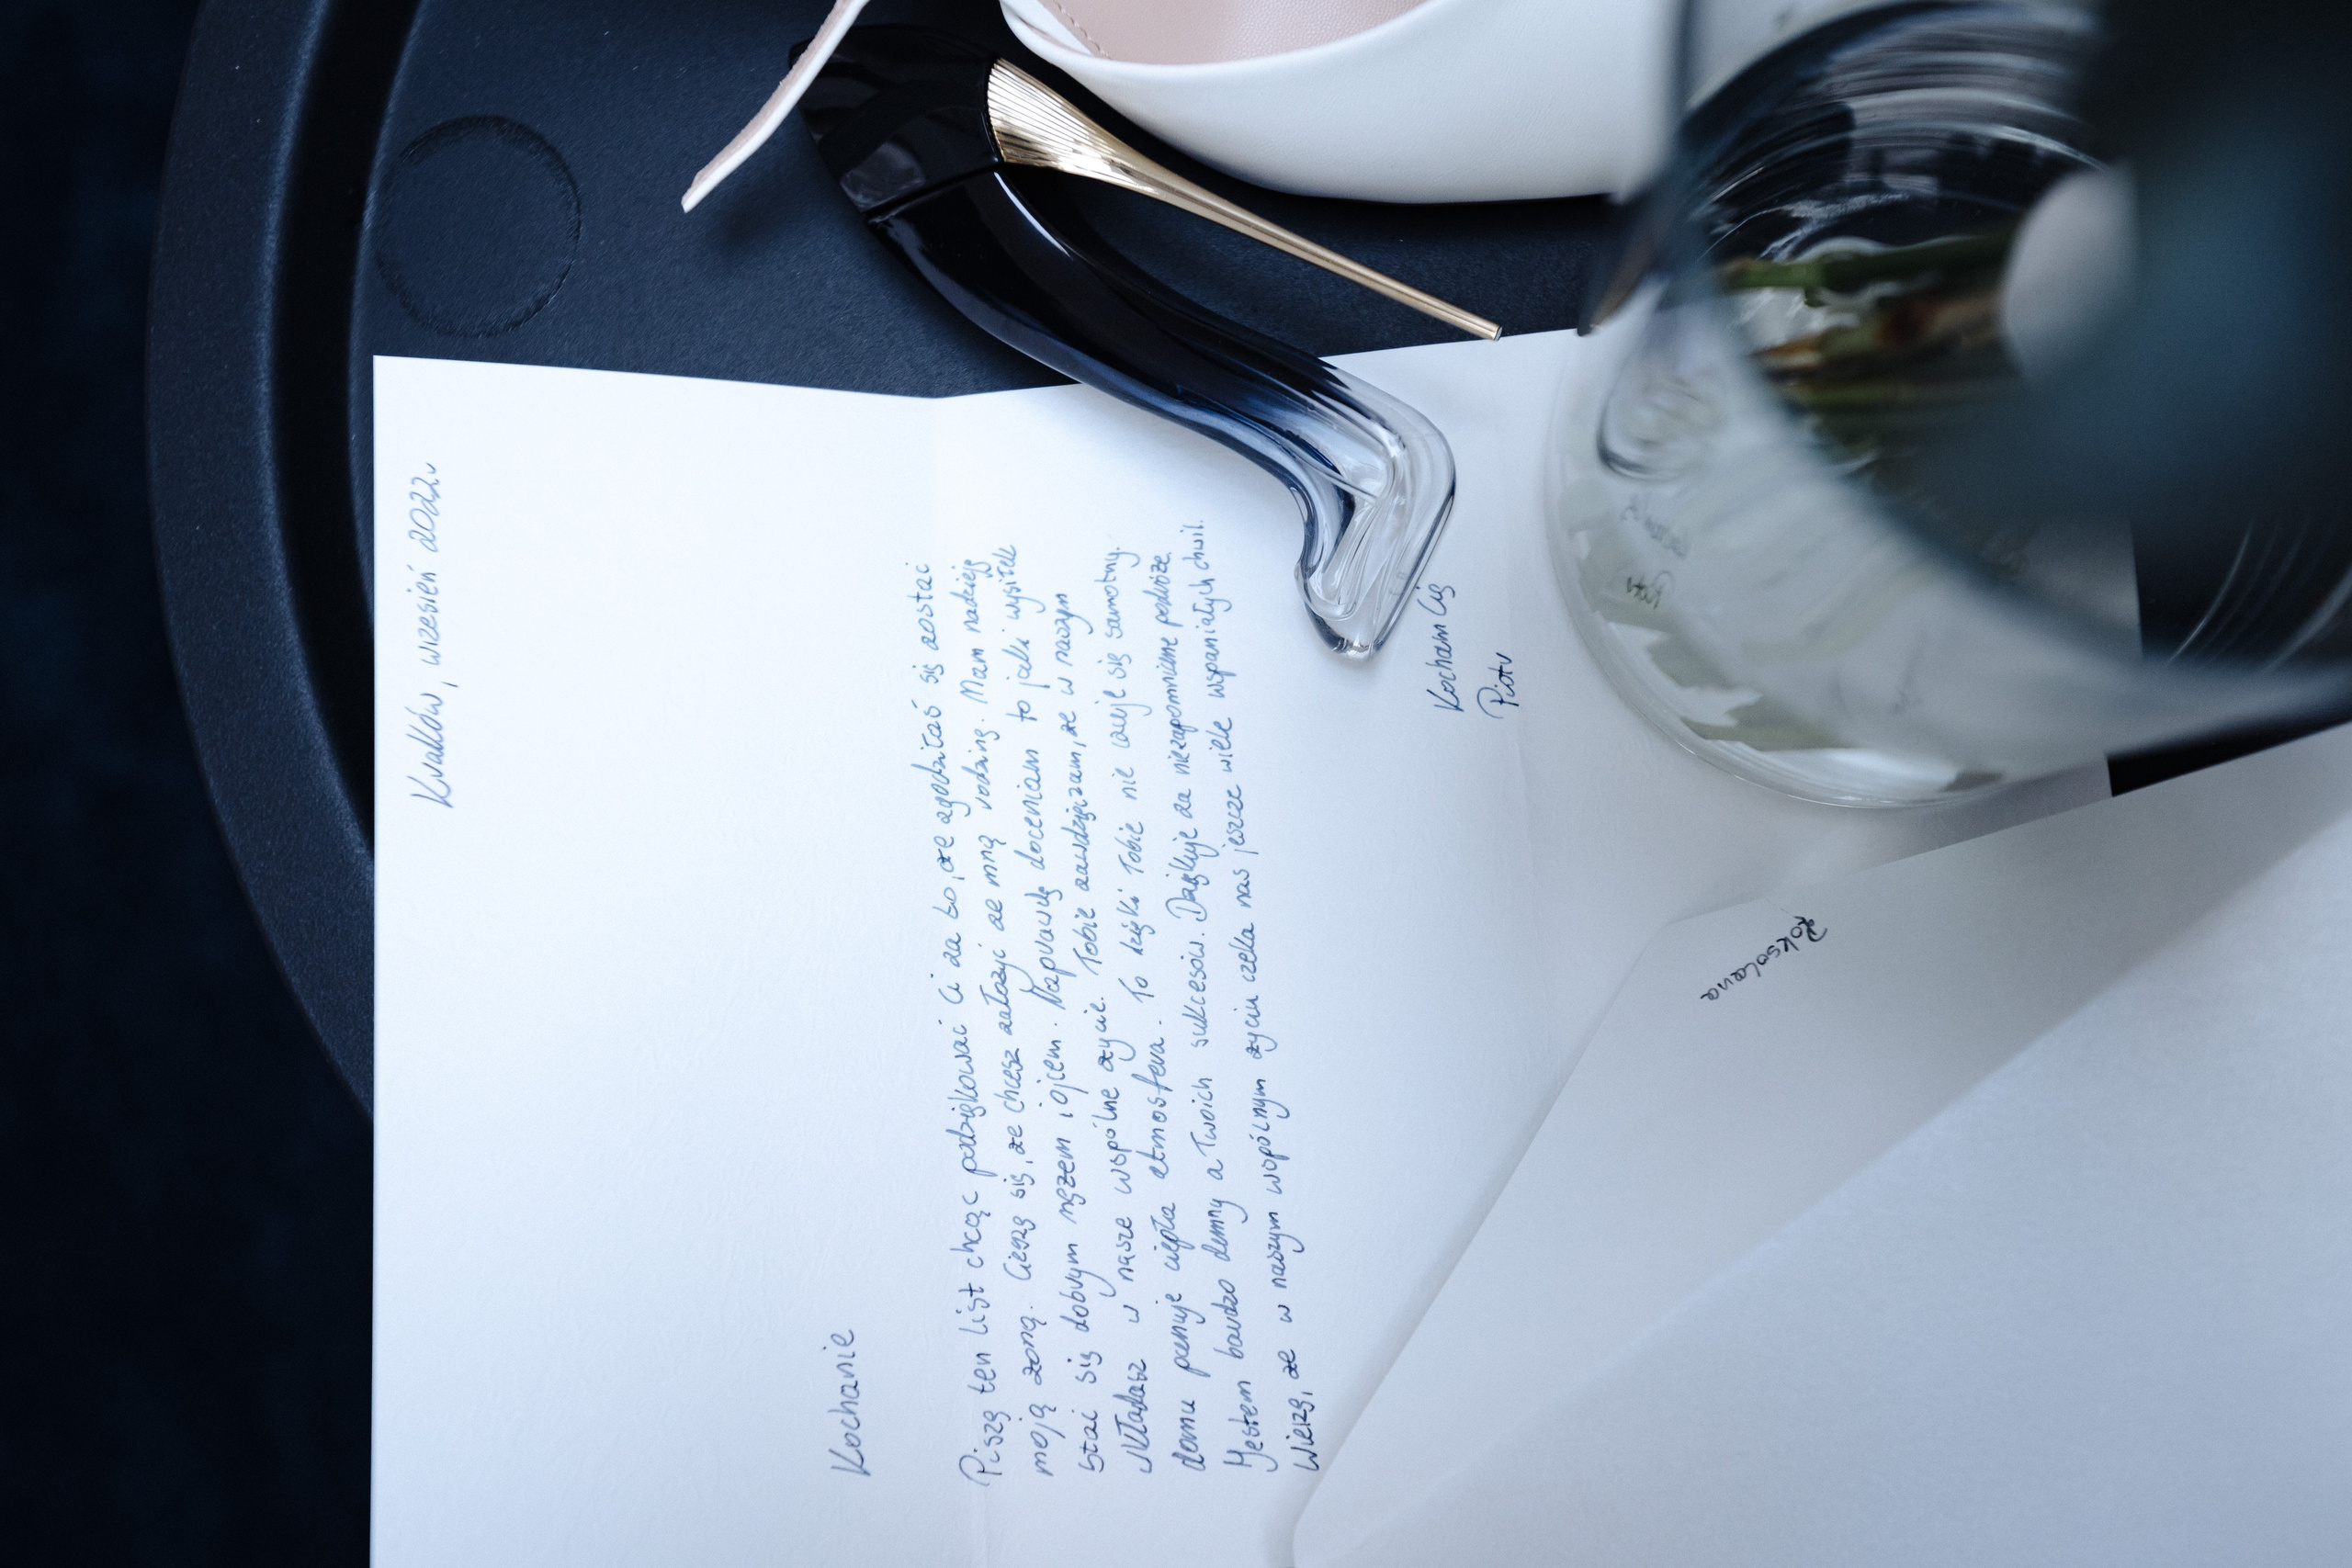 Kraków, wrzesień 2022r
Kochanie
Piszę ten list chcąc podziękować Ci za to, że zgodziłaś się zostać
moją żoną. Cieszę się, że chcesz założyć ze mną rodzinę. Mam nadzieję
stać się dobrym mężem i ojcem. Naprawdę doceniam to jaki wysiłek
wkładasz w nasze wspólne życie. Tobie zawdzięczam, że w naszym
domu panuje ciepła atmosfera. To dzięki Tobie nie czuję się samotny.
Jestem bardzo dumny z Twoich sukcesów. Dziękuję za niezapomniane podróże.
Wierzę, że w naszym wspólnym życiu czeka nas jeszcze wiele wspaniałych chwil.
Kocham Cię
Piotr
Roksolana